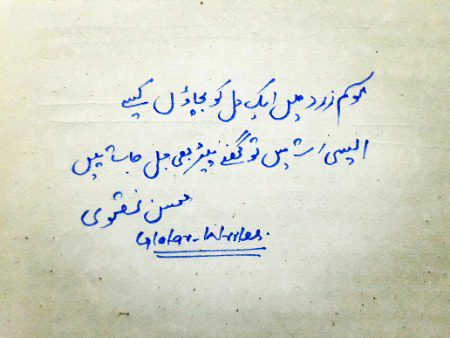 موسم زرد میں ایک دل کو بچاؤں کیسے
ایسی رت میں تو گھنے پیڑ بھی جل جاتے ہیں
محسن نقوی
Writes.